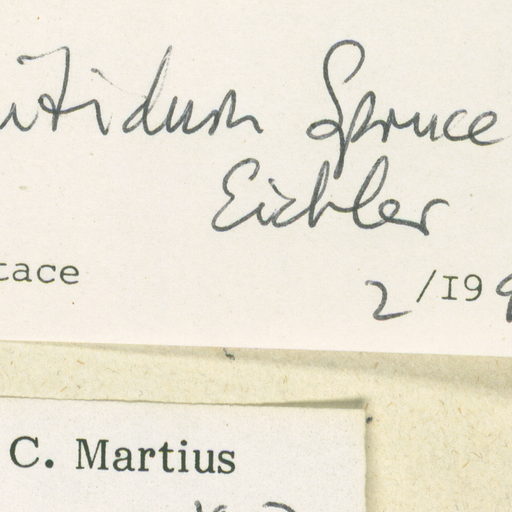 itidum Spruce
Eichler
tace
2/199
C. Martius